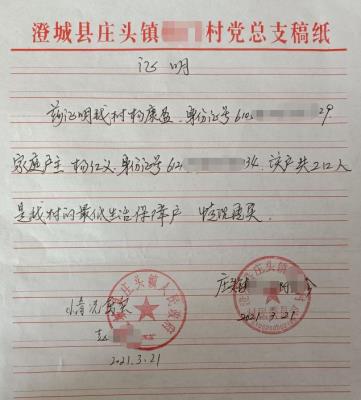 澄城县庄头镇 村党总支稿纸
证明
兹证明我村杨康盈,身份证号610 29
家庭户主杨仁义,身份证号612 34.该户共2口人
是我村的最低生活保障户 情况属实
庄头镇 村 会
情况属实
2021.3.21
2021.3.21
澄城县庄头镇人民政府
澄城县庄头镇